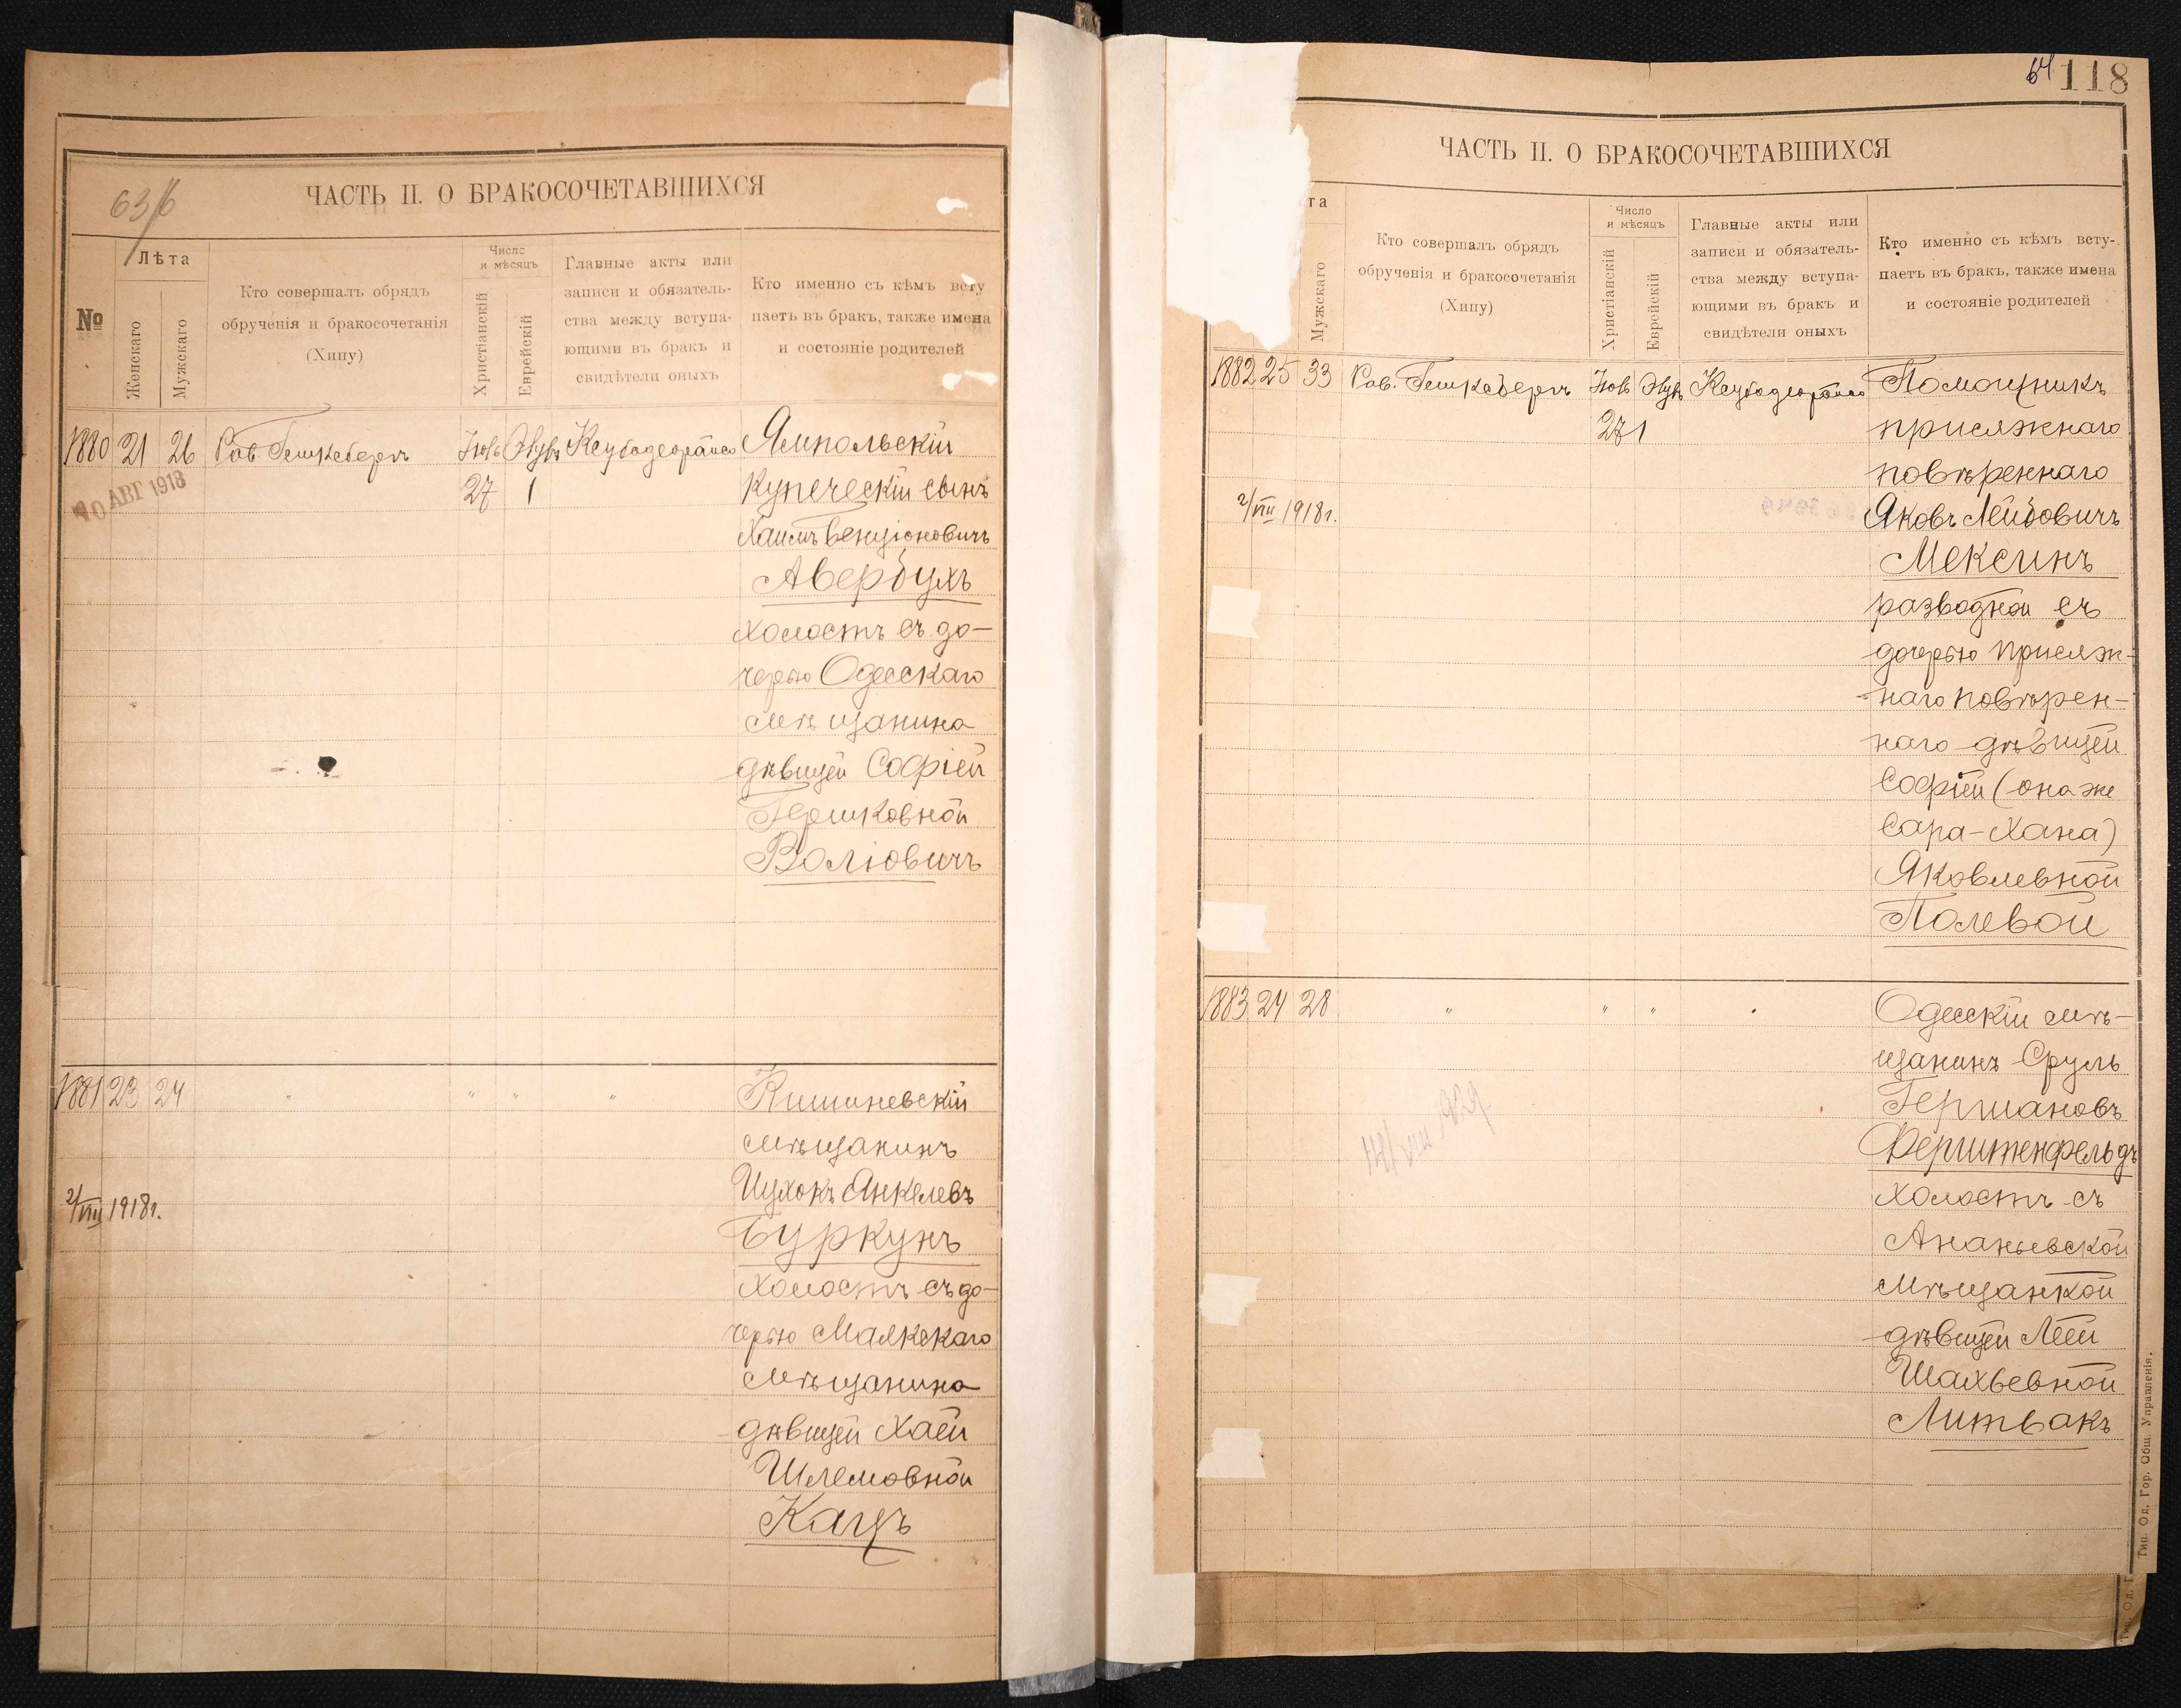 63/6
ЧАСТЬ II. О БРАКОСОЧЕТАВШИХСЯ
№
Лѣта
Женскаго
Мужскаго
Кто совершалъ обрядъ
обрученія и бракосочетанія
(Хипу)
Число
и мѣсяцъ
Христіанскій
Еврейскій
Главные акты или
записи и обязатель-
ства между вступа-
ющими въ бракъ и
свидѣтели оныхъ
Кто именно съ кѣмъ всту
паетъ въ бракъ, также имена
и состояніе родителей
1880 21 26 Рав.
27 1
10 АВГ 1918
Ямпольскій
купеческій сынъ
Хаимъ Бенціоновичъ
Авербухъ
холостъ съ до-
черью Одесскаго
мѣщанина
дѣвицей Софіей
Гершковной
Воліовичъ
1881 23 24 " " " "
2/VIII 1918г.
Кишиневскій
мѣщанинъ
Ицхокъ Янкелевъ
Буркунъ
холостъ съ до-
черью Маякскаго
мѣщанина
дѣвицей Хаей
Шлемовной
Кацъ
64 118
ЧАСТЬ II. О БРАКОСОЧЕТАВШИХСЯ
та
Мужскаго
Кто совершалъ обрядъ
обрученія и бракосочетанія
(Хипу)
Число
и мѣсяцъ
Христіанскій
Еврейскій
Главные акты или
записи и обязатель-
ства между вступа-
ющими въ бракъ и
свидѣтели оныхъ
Кто именно съ кѣмъ всту-
паетъ въ бракъ, также имена
и состояніе родителей
1882 25 33 Рав.
27 1
2/VIII 1918г.
Помощникъ
присяжнаго
повѣреннаго
Яковъ Лейбовичъ
Мексинъ
разводной съ
дочерью присяж-
наго повѣрен-
наго дѣвицей
Софіей (она же
Сара-Хана)
Яковлевной
Полевой
1883 24 28 " " " "
14/VIII 1929
Одесскій мѣ-
щанинъ Сруль
Германовъ
Ферштенфельдъ
холостъ съ
Ананьевской
мѣщанкой
дѣвицей Леей
Шахьевной
Литвакъ
Тип. Од. Гор. Общ. Управленія.